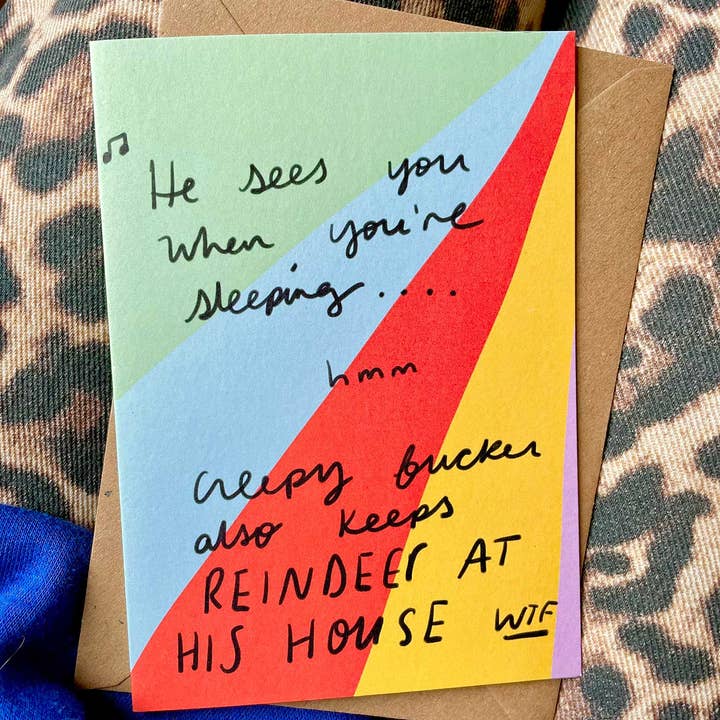 He sees you
when you're
sleeping....
hmm
creepy fucker
also keeps
REINDEER AT
HIS HOUSE WTF